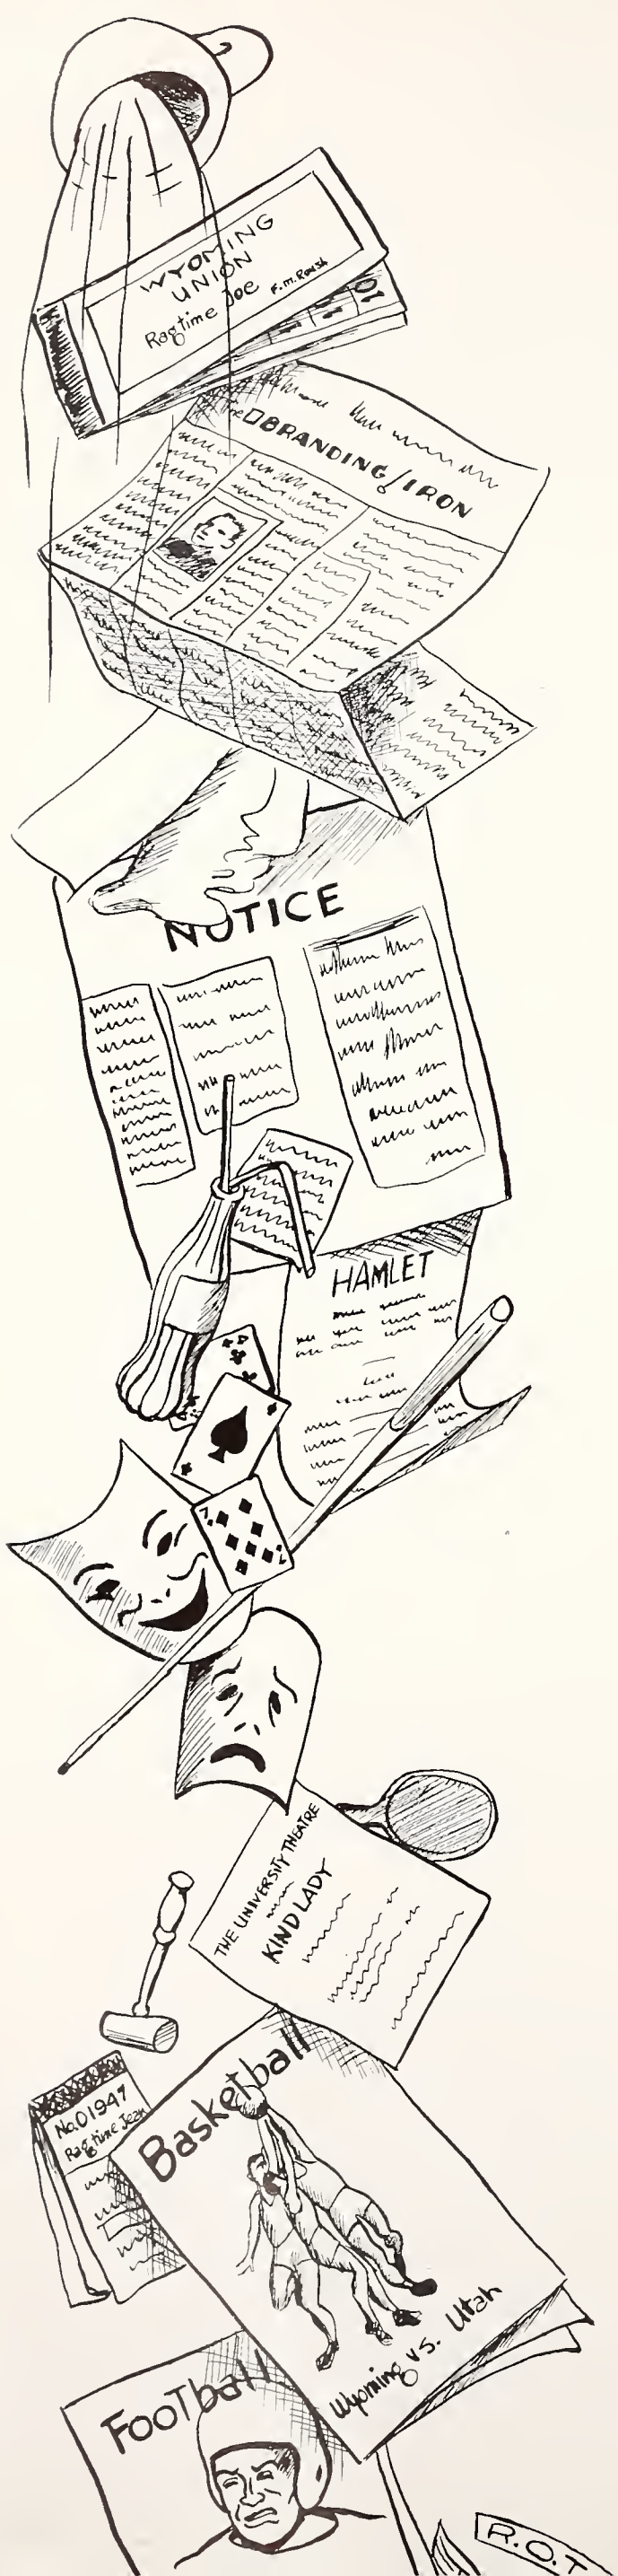 WYOMING
UNION
Ragtime Joe
F.M. Roush
The BRANDING IRON
NOTICE
HAMLET
7
7
THE UNIVERSITY THEATRE
KIND LADY
No. 01947
Ragtime Jean
Basketball
Wyoming vs. Utah
FooTball
R.O.T